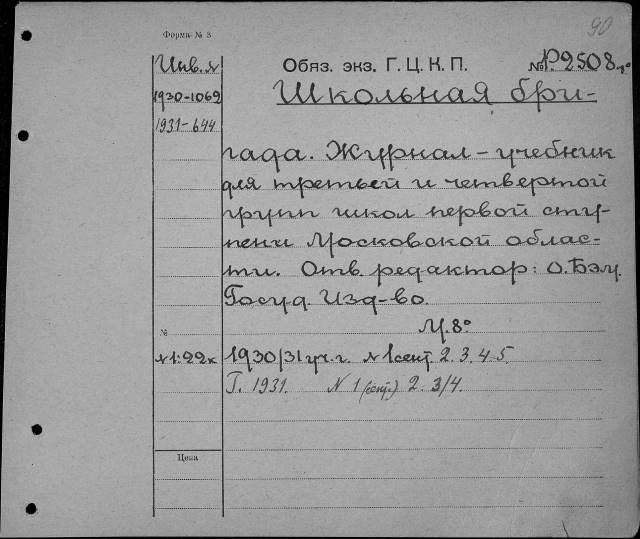 90
Форма № 3
Инв. №
Обяз. экз. Г. Ц. К. П.
№ Р.2508.
1930-1062
Школьная бри-
1931-644
гада. Журнал-учебник
для третьей и четвертой
групп школ первой сту-
пени Московской облас-
ти. Отв. редактор: О. Бэм.
Госуд. Изд-во.
М. 8°
№
№ 1:22к
1930/31 уч. г. № 1 сент 2. 3. 4. 5.
Г. 1931. № 1 (сент.) 2. 3/4.
Цена